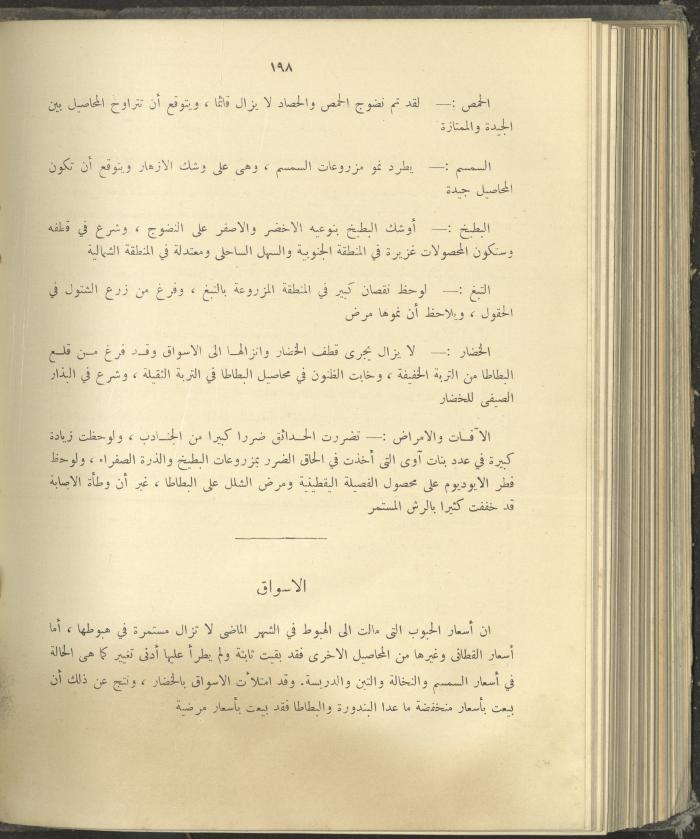 ١٩٨
الحمص :— لقد تم نضوج الحمص والحصاد لا يزال قائما ، ويتوقع أن تتراوح المحاصيل بين
الجيدة والممتازة
السمسم :— يطرد نمو مزروعات السمسم ، وهى على وشك الازهار ويتوقع أن تكون
المحاصيل جيدة
البطيخ :— أوشك البطيخ بنوعيه الاخضر والاصفر على النضوج ، وشرع في قطفه
وستكون المحصولات غزيرة في المنطقة الجنوبية والسهل الساحلى ومعتدلة في المنطقة الشمالية
التبغ :— لوحظ نقصان كبير في المنطقة المزروعة بالتبغ ، وفرغ من زرع الشتول في
الحقول ، ويلاحظ أن نموها مرض
الخضار :— لا يزال يجرى قطف الخضار وانزالها الى الاسواق وقد فرغ من قلع
البطاطا من التربة الخفيفة ، وخابت الظنون في محاصيل البطاطا في التربة الثقيلة ، وشرع في البذار
الصيفى للخضار
الآفات والامراض :— تضررت الحدائق ضررا كبيرا من الجنادب ، ولوحظت زيادة
كبيرة في عدد بنات آوى التى أخذت في الحاق الضرر بمزروعات البطيخ والذرة الصفراء ، ولوحظ
فطر الايوديوم على محصول الفصيلة اليقطينية ومرض الشلل على البطاطا ، غير أن وطأة الاصابة
قد خففت كثيرا بالرش المستمر
الاسواق
ان أسعار الحبوب التى مالت الى الهبوط في الشهر الماضى لا تزال مستمرة في هبوطها ، أما
أسعار القطانى وغيرها من المحاصيل الاخرى فقد بقيت ثابتة ولم يطرأ عليها أدنى تغيير كما هى الحالة
في أسعار السمسم والنخالة والتبن والدريسة. وقد امتلأت الاسواق بالخضار ، ونتج عن ذلك أن
بيعت بأسعار منخفضة ما عدا البندورة والبطاطا فقد بيعت بأسعار مرضية